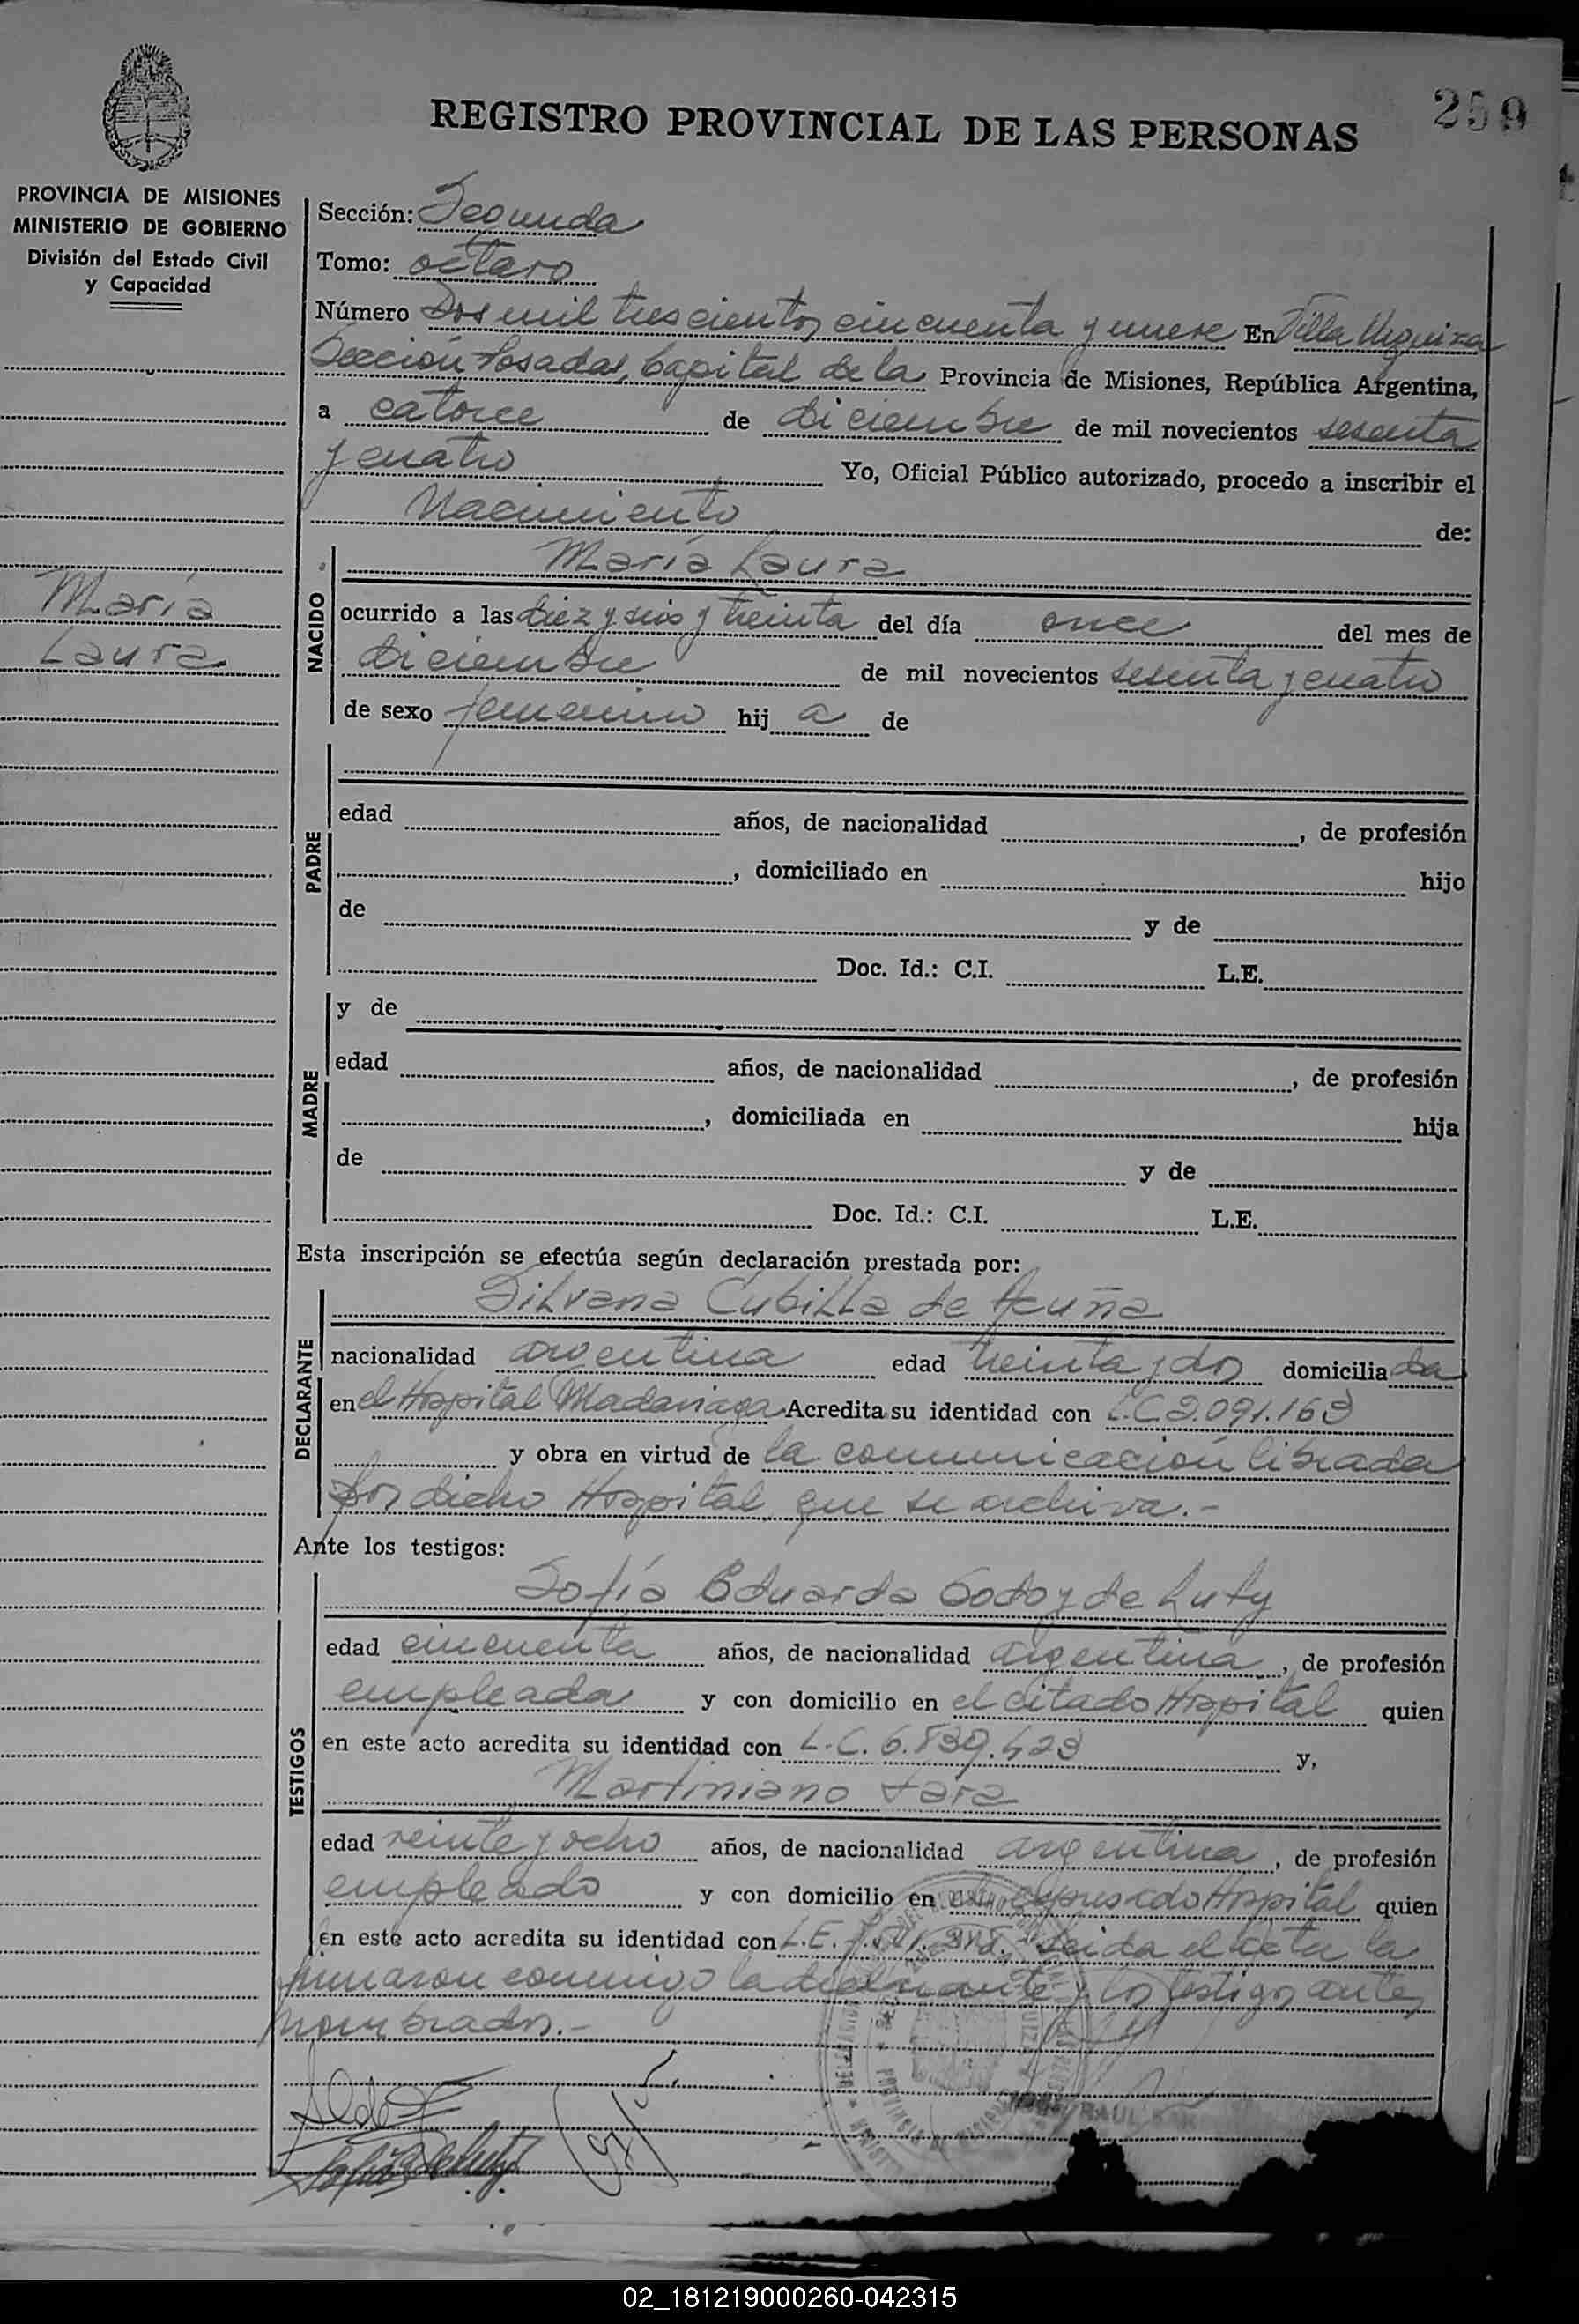 259
REGISTRO PROVINCIAL DE LAS PERSONAS
PROVINCIA DE MISIONES
MINISTERIO DE GOBIERNO
División del Estado Civil
y Capacidad
Sección: Segunda
Tomo: octavo
Número Dos mil trescientos cincuenta y nueve En Villa Urquiza
Sección Posadas, Capital de la Provincia de Misiones, República Argentina,
a catorce de diciembre de mil novecientos sesenta
y cuatro Yo, Oficial Público autorizado, procedo a inscribir el
Nacimiento de:
María
Laura
NACIDO
María Laura
ocurrido a las diez y seis y treinta del día once del mes de
diciembre de mil novecientos sesenta y cuatro
de sexo femenino hij a de
PADRE
edad años, de nacionalidad , de profesión
, domiciliado en hijo
de y de
Doc. Id.: C.I. L.E.
MADRE
y de
edad años, de nacionalidad , de profesión
, domiciliada en hija
de y de
Doc. Id.: C.I. L.E.
Esta inscripción se efectúa según declaración prestada por:
DECLARANTE
Silvana Cubilla de Acuña
nacionalidad argentina edad treinta y dos domicilia da
en el Hospital Madariaga Acredita su identidad con L.C. 2.091.163
y obra en virtud de la comunicación librada
por dicho Hospital, que se archiva.-
Ante los testigos:
TESTIGOS
Sofía Eduarda Godoy de Luty
edad cincuenta años, de nacionalidad argentina, de profesión
empleada y con domicilio en el citado Hospital quien
en este acto acredita su identidad con L.C. 6.839.423 y,
Martiniano Jara
edad veinte y ocho años, de nacionalidad argentina, de profesión
empleado y con domicilio en el expresado Hospital quien
en este acto acredita su identidad con L.E. Leida el acta la
firmaron conmigo la declarante y los testigos antes
nombrados.-
RAUL
02_181219000260-042315